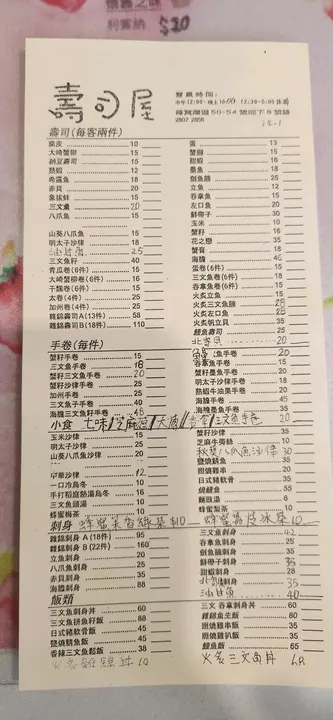 $20
壽司屋
營業時間:
中午12:00-晚上10:00 (2:30-5:00休息)
50-54號地下8號舖
2807 2856
壽司(每客兩件)
腐皮 10
大崎蟹柳 15
納豆壽司 15
熟蝦 12
希靈魚 18
赤貝 20
象拔蚌 15
三文魚 20
八爪魚 15
山葵八爪魚 15
明太子沙律 18
油甘魚 25
三文魚籽 40
青瓜卷(6件) 15
大崎蟹柳卷(6件) 16
干瓢卷(6件) 15
太卷(4件) 25
加州卷(4件) 25
雜錦壽司A(13件) 58
雜錦壽司B(18件) 110
蛋 13
蟹柳 15
甜蝦 16
墨魚 18
劍魚腩 25
立魚 12
吞拿魚 15
左口魚 20
鮮帶子 30
玉米 10
蟹籽 16
花之戀 35
蟹膏 18
海膽
蛋卷(6件) 15
三文魚卷(6件) 18
吞拿魚卷(6件) 18
火炙立魚 15
火炙三文魚腩 28
火炙左口魚 25
火炙帆立貝 35
鰻魚壽司 25
北寄貝 20
手卷(每件)
蟹籽手卷 15
三文魚手卷 18
蟹籽三文魚手卷 20
蟹籽沙律手卷 18
加州手卷 25
三文魚子手卷 40
海膽三文魚籽手卷
手卷 20
吞拿魚手卷 15
蟹籽墨魚手卷 20
明太子沙律手卷 18
熟蝦牛油果手卷 20
海膽手卷 45
海膽墨魚手卷 35
小食
三文魚手卷 20
玉米沙律 15
明太子沙律 25
八爪魚沙律 20
中華沙律 12
一口冷烏冬 10
手打稻庭熱湯烏冬 16
三文魚頭湯 10
蜂蜜梅茶 10
蟹籽沙律 35
芝麻牛蒡絲 10
秋葵八爪魚沙律 30
鹽燒鯖魚 35
照燒雞串 20
日式豬軟骨 35
燒鰻魚 55
麵豉湯 8
蜂蜜梨茶 10
刺身
雜錦刺身 A (18件) 95
雜錦刺身 B (22件) 160
立魚刺身 20
八爪魚刺身 25
赤貝刺身 35
海膽刺身 88
三文魚刺身 42
吞拿魚刺身 25
劍魚腩刺身 35
鮮帶子刺身 35
甜蝦刺身 28
北寄刺身 35
油甘魚 40
飯類
三文魚刺身丼 60
三文魚拼魚籽飯 88
日式豬軟骨飯 45
鹽燒鯖魚飯 45
香辣三文魚鬆飯 38
三文吞拿刺身丼 60
雜錦魚生飯 80
照燒雞串飯 35
照燒雞扒飯 35
鰻魚飯 65
火炙三文魚丼